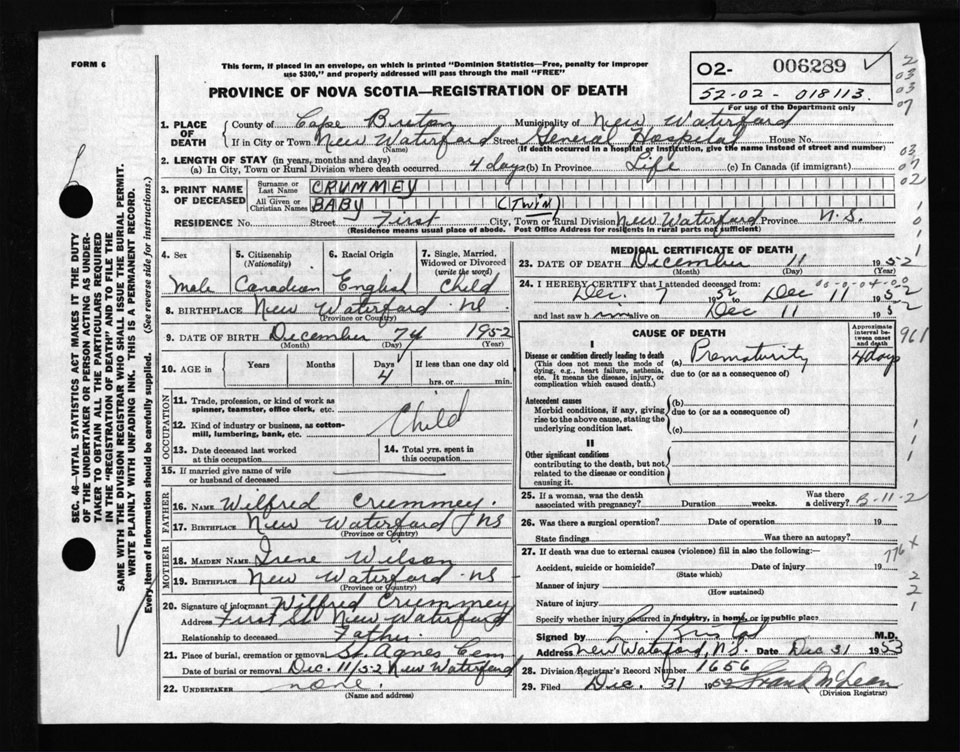 FORM 6
This form, if placed in an envelope, on which is printed "Dominion Statistics—Free, penalty for improper
use $300," and properly addressed will pass through the mail "FREE"
O2- 006289 ✓
52-02-018113
For use of the Department only
2
03
03
07
03
07
02
PROVINCE OF NOVA SCOTIA—REGISTRATION OF DEATH
1. PLACE OF DEATH
County of Cape Breton Municipality of New Waterford
If in City or Town New Waterford Street General Hospital House No.
(Name) (If death occurred in a hospital or institution, give the name instead of street and number)
2. LENGTH OF STAY (in years, months and days)
(a) In City, Town or Rural Division where death occurred 4 days (b) In Province Life (c) In Canada (if immigrant)
3. PRINT NAME OF DECEASED
Surname or Last Name CRUMMEY
All Given or Christian Names BABY (TWIN)
RESIDENCE No. Street First City, Town or Rural Division New Waterford Province N.S.
(Residence means usual place of abode. Post Office Address for residents in rural parts not sufficient)
4. Sex
Male
5. Citizenship (Nationality)
Canadian
6. Racial Origin
English
7. Single, Married, Widowed or Divorced (write the word)
Child
8. BIRTHPLACE New Waterford NS
(Province or Country)
9. DATE OF BIRTH December 7th 1952
(Month) (Day) (Year)
10. AGE in Years Months Days 4 If less than one day old
hrs. or min.
OCCUPATION
11. Trade, profession, or kind of work as
spinner, teamster, office clerk, etc.
12. Kind of industry or business, as cotton-
mill, lumbering, bank, etc.
Child
13. Date deceased last worked
at this occupation
14. Total yrs. spent in
this occupation
15. If married give name of wife
or husband of deceased
FATHER
16. NAME Wilfred Crummey.
17. BIRTHPLACE New Waterford NS
(Province or Country)
MOTHER
18. MAIDEN NAME Irene Wilson
19. BIRTHPLACE New Waterford NS
(Province or Country)
20. Signature of informant Wilfred Crummey
Address First St New Waterford
Relationship to deceased Father
21. Place of burial, cremation or removal St. Agnes Cem
Date of burial or removal Dec. 11/52 New Waterford
22. UNDERTAKER none.
(Name and address)
MEDICAL CERTIFICATE OF DEATH
23. DATE OF DEATH December 11 1952
(Month) (Day) (Year)
24. I HEREBY CERTIFY that I attended deceased from:
Dec. 7 1952 to Dec 11 1952
and last saw him alive on Dec 11 1952
CAUSE OF DEATH
Approximate interval between onset and death
961
I
Disease or condition directly leading to death
(This does not mean the mode of
dying, e.g., heart failure, asthenia,
etc. It means the disease, injury, or
complication which caused death.)
(a) Prematurity 4 days
due to (or as a consequence of)
Antecedent causes
Morbid conditions, if any, giving
rise to the above cause, stating the
underlying condition last.
(b)
due to (or as a consequence of)
(c)
II
Other significant conditions
contributing to the death, but not
related to the disease or condition
causing it.
25. If a woman, was the death
associated with pregnancy? Duration weeks. Was there a delivery? B-11-2
26. Was there a surgical operation? Date of operation 19
State findings Was there an autopsy?
27. If death was due to external causes (violence) fill in also the following:—
Accident, suicide or homicide? Date of injury 19
(State which)
776 x
Manner of injury
(How sustained)
Nature of injury
2
2
1
Specify whether injury occurred in industry, in home, or in public place
Signed by M.D.
Address New Waterford, N.S. Date Dec 31 1953
28. Division Registrar's Record Number 1656
29. Filed Dec. 31 1952 Frank McLean
(Division Registrar)
SEC. 46—VITAL STATISTICS ACT MAKES IT THE DUTY
OF THE UNDERTAKER OR PERSON ACTING AS UNDER-
TAKER TO OBTAIN ALL THE PARTICULARS REQUIRED
IN THE "REGISTRATION OF DEATH" AND TO FILE THE
SAME WITH THE DIVISION REGISTRAR WHO SHALL ISSUE THE BURIAL PERMIT.
WRITE PLAINLY WITH UNFADING INK. THIS IS A PERMANENT RECORD.
Every item of information should be carefully supplied. (See reverse side for instructions.)